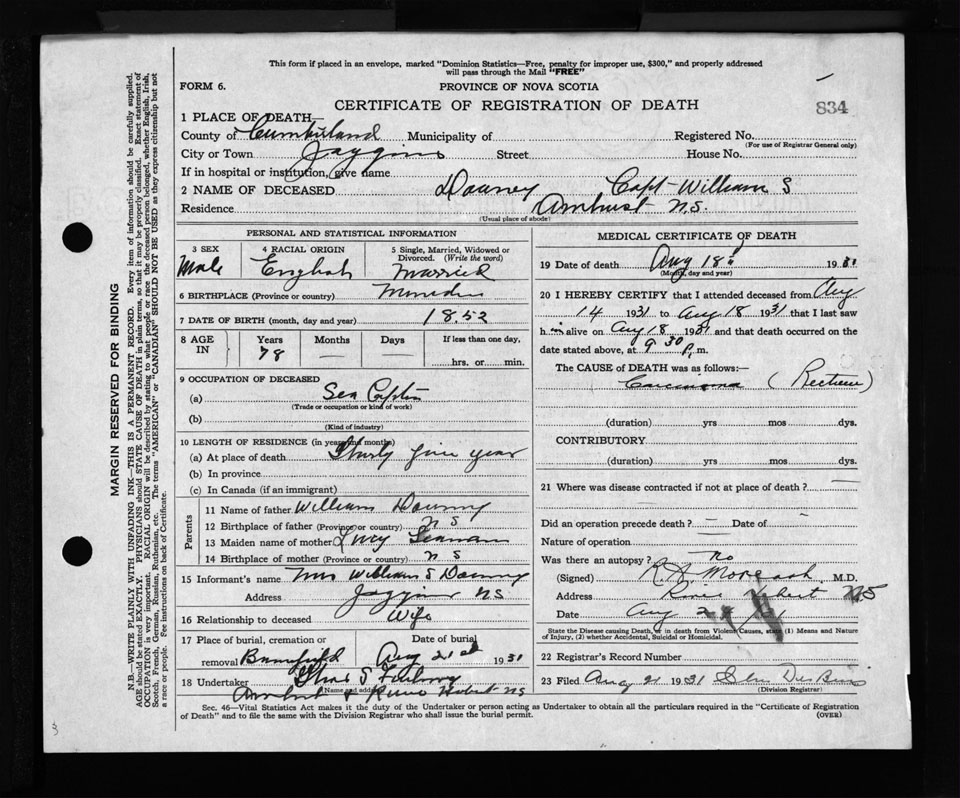 This form if placed in an envelope, marked "Dominion Statistics—Free, penalty for improper use, $300," and properly addressed
will pass through the Mail "FREE"
FORM 6.
PROVINCE OF NOVA SCOTIA
CERTIFICATE OF REGISTRATION OF DEATH
834
1 PLACE OF DEATH—
County of Cumberland Municipality of Registered No.
(For use of Registrar General only)
City or Town Joggins Street House No.
If in hospital or institution, give name
2 NAME OF DECEASED Downey Capt William S
Residence Amherst N.S.
(Usual place of abode)
PERSONAL AND STATISTICAL INFORMATION
3 SEX 4 RACIAL ORIGIN 5 Single, Married, Widowed or
Divorced. (Write the word)
Male English Married
6 BIRTHPLACE (Province or country)
7 DATE OF BIRTH (month, day and year) 1852
8 AGE IN Years Months Days If less than one day,
78 — — hrs. or min.
9 OCCUPATION OF DECEASED
(a) Sea Captin
(Trade or occupation or kind of work)
(b)
(Kind of industry)
10 LENGTH OF RESIDENCE (in years and months)
(a) At place of death year
(b) In province
(c) In Canada (if an immigrant)
Parents
11 Name of father William Downey
12 Birthplace of father (Province or country) N S
13 Maiden name of mother Lucy Seaman
14 Birthplace of mother (Province or country) N S
15 Informant's name Mrs William S Downey
Address Joggins NS
16 Relationship to deceased Wife
17 Place of burial, cremation or Date of burial
removal Aug 21st 1931
18 Undertaker
(Name and address)
Amherst & River Hebert NS
MEDICAL CERTIFICATE OF DEATH
19 Date of death Aug 18" 1931
(Month, day and year)
20 I HEREBY CERTIFY that I attended deceased from Aug
14 1931 to Aug 18 1931 that I last saw
h im alive on Aug 18 1931 and that death occurred on the
date stated above, at 9 30 P. m.
The CAUSE of DEATH was as follows:—
Carcinoma (Rectum)
(duration) yrs mos dys.
CONTRIBUTORY
(duration) yrs. mos. dys.
21 Where was disease contracted if not at place of death? —
Did an operation precede death? — Date of —
Nature of operation
Was there an autopsy? No
(Signed) M.D.
Address River Hebert NS
Date Aug
State the Disease causing Death, or in death from Violent Causes, state (1) Means and Nature
of Injury, (2) whether Accidental, Suicidal or Homicidal.
22 Registrar's Record Number
23 Filed Aug 21 1931
(Division Registrar)
Sec. 46—Vital Statistics Act makes it the duty of the Undertaker or person acting as Undertaker to obtain all the particulars required in the "Certificate of Registration
of Death" and to file the same with the Division Registrar who shall issue the burial permit.
(OVER)
MARGIN RESERVED FOR BINDING
N.B.—WRITE PLAINLY WITH UNFADING INK—THIS IS A PERMANENT RECORD. Every item of information should be carefully supplied.
AGE should be stated EXACTLY. PHYSICIANS should STATE CAUSE OF DEATH in plain terms, so that it may be properly classified. Exact statement of
OCCUPATION is very important. RACIAL ORIGIN will be described by stating to what people or race the deceased person belonged, whether English, Irish,
Scotch, French, German, Russian, Ruthenian, etc. The terms "AMERICAN" or "CANADIAN" SHOULD NOT BE USED as they express citizenship but not
a race or people. See instructions on back of Certificate.